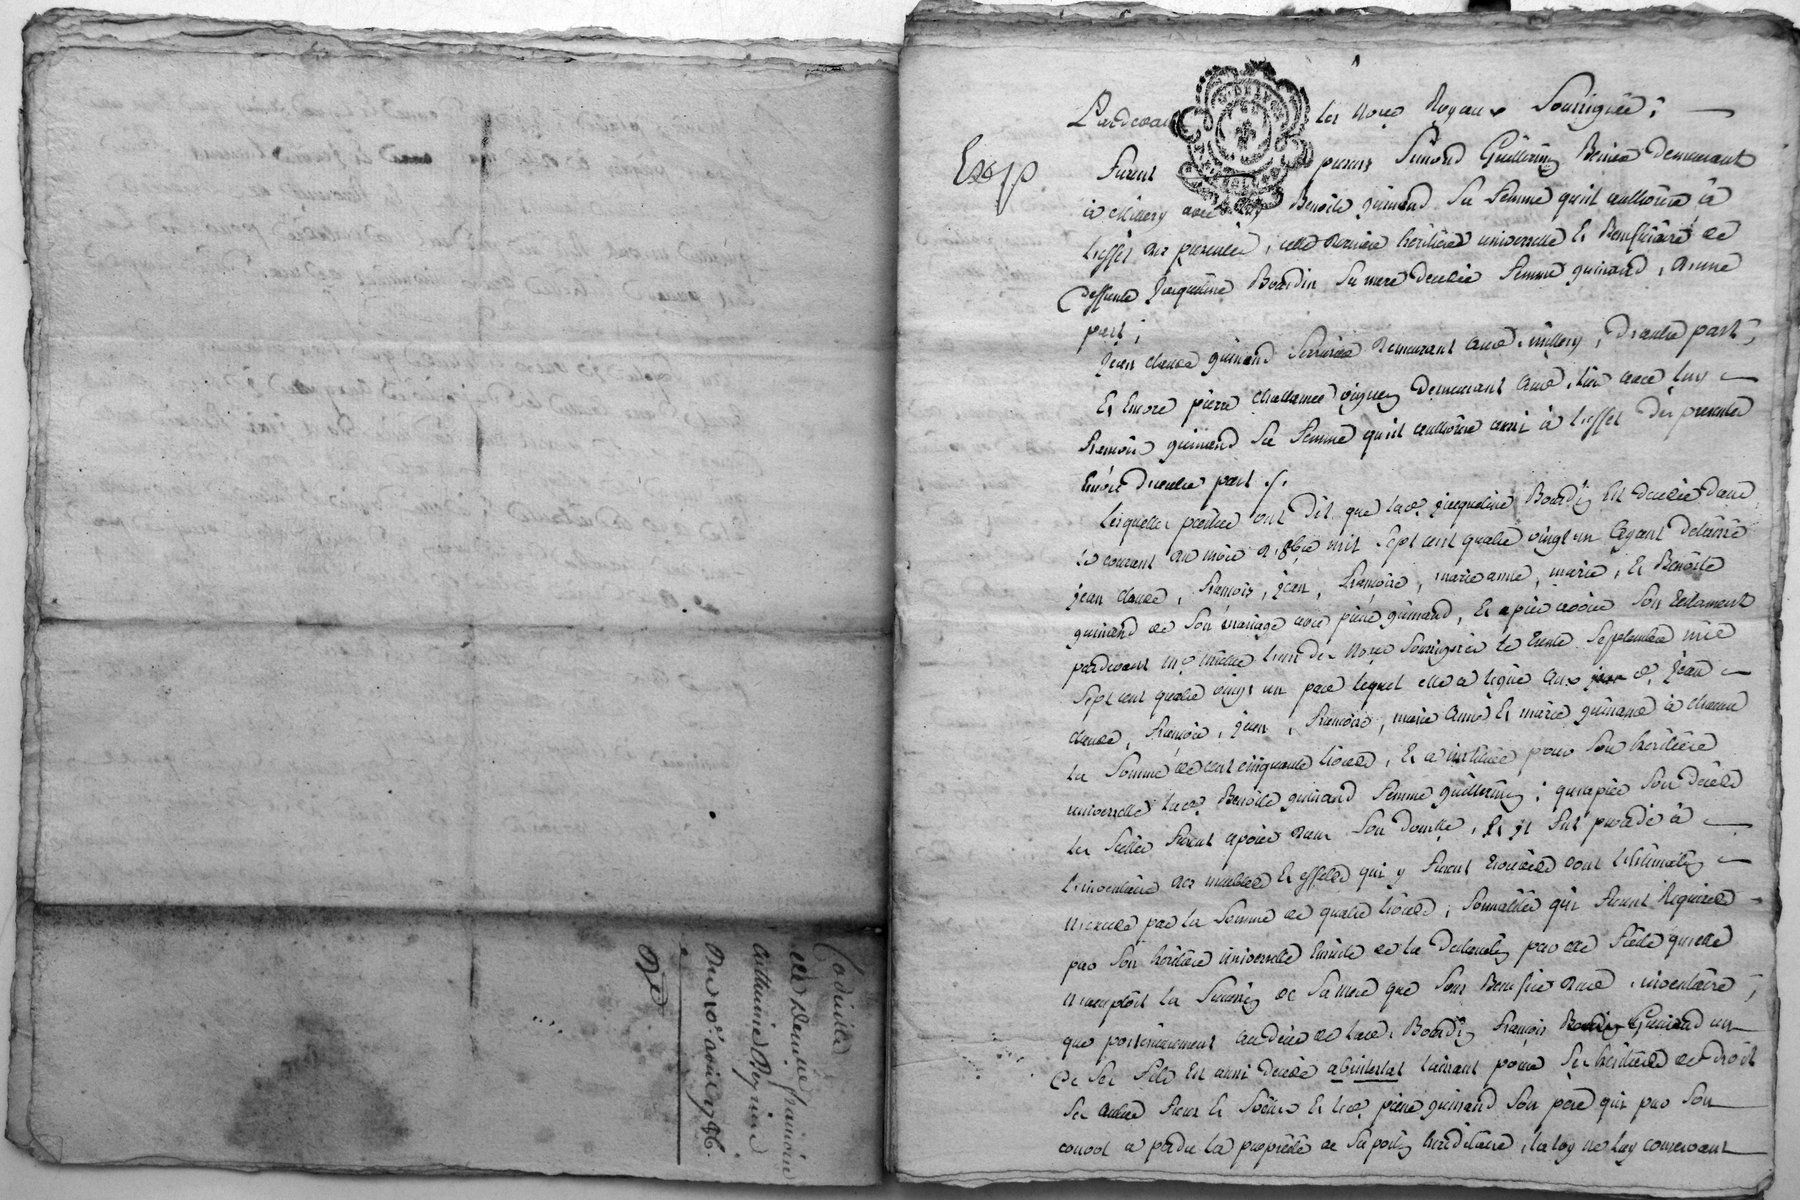 Codicille
de demlle francoise
Catherine Reynier
Du 10e avril 1786.
Exp
Pardevant les Nores Royaux Soussignés ;
Furent presents Simond Guillermin demeurant
à Millery avec Benoite guinand Sa Femme qu'il authorise à
l'effet des presentes, cette derniere heritiere universelle Et Beneficiaire de
deffunte Jacqueline Bourdin Sa mere decedée Femme guinand, d'une
part ;
Jean claude guinand demeurant aud. millery, d'autre part ;
Et Encore pierre vigneron demeurant aud. lieu avec luy
francoise guinand Sa Femme qu'il authorise aussi à l'effet des presentes
Encore d'autre part ./.
Lesquelles parties ont dit que lad. jacqueline Bourdin Est decedée dans
le courant du mois d' 8bre mil Sept cent quatre vingt un ayant delaissé
jean claude, francois, jean, francoise, marie anne, marie, Et Benoite
guinand de Son mariage avec pierre guinand, Et après avoir Son testament
pardevant l'un des Nores Soussignés le trente Septembre mil
Sept cent quatre vingt un par lequel elle a legué aux d. jean
claude, francois, jean, francoise, marie anne Et marie guinand à chacun
la Somme de cent cinquante livres, Et a institué pour Son heritiere
universelle lad. Benoite guinand Femme guillermin ; qu'après Son decès
les Scellés Furent apposés dans Son domicille, Et il Fut procedé à
l'inventaire des meubles Et effets qui y Furent trouvés dont l'estimation
n'excede pas la Somme de quatre livres ; Formalités qui Furent Requises
par Son heritiere universelle Ensuite de la declaration par elle Faite qu'elle
n'acceptoit la Succession de Sa mere que Sous Benefice d'inventaire ;
que posterieurement au decès de lad. Bourdin francois Guinand un
de Ses Fils Est aussi decedé abintestat laissant pour Ses heritiers de droit
Ses autres Freres Et Soeurs Et led. pierre guinand Son pere qui par Son
convol a perdu la proprieté de Sa portion hereditaire, la loy ne luy conservant